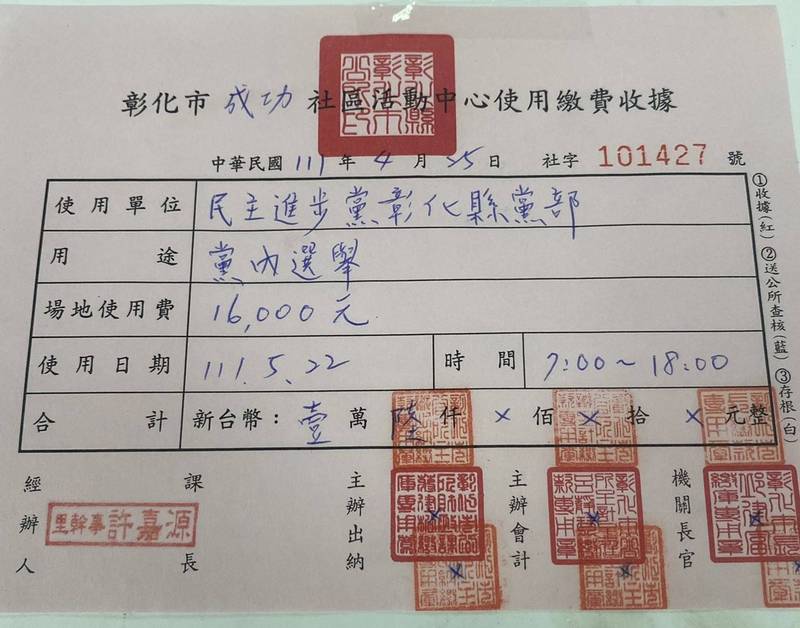 彰化市 成功 社區活動中心使用繳費收據
中華民國 111 年 4 月 25 日 社字 101427 號
使用單位 民主進步黨彰化縣黨部
用途 黨內選舉
場地使用費 16,000元
使用日期 111.5.22 時間 7:00~18:00
合計 新台幣：壹萬陸仟×佰×拾×元整
①收據(紅) ②送公所查核(藍) ③存根(白)
經辦人 課長 主辦出納 主辦會計 機關長官
里幹事許嘉源